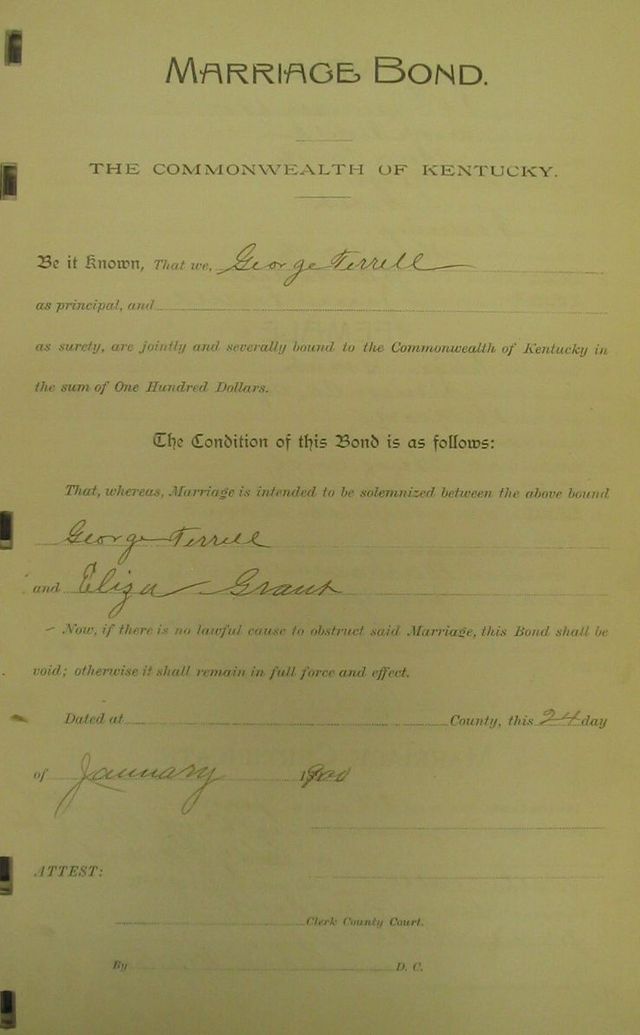 MARRIAGE BOND.
THE COMMONWEALTH OF KENTUCKY.
Be it Known, That we, George Terrell
as principal, and
as surety, are jointly and severally bound to the Commonwealth of Kentucky in
the sum of One Hundred Dollars.
The Condition of this Bond is as follows:
That, whereas, Marriage is intended to be solemnized between the above bound
George Terrell
and Eliza Grant
Now, if there is no lawful cause to obstruct said Marriage, this Bond shall be
void; otherwise it shall remain in full force and effect.
Dated at County, this 24 day
of January 1900
ATTEST:
Clerk County Court.
By D. C.